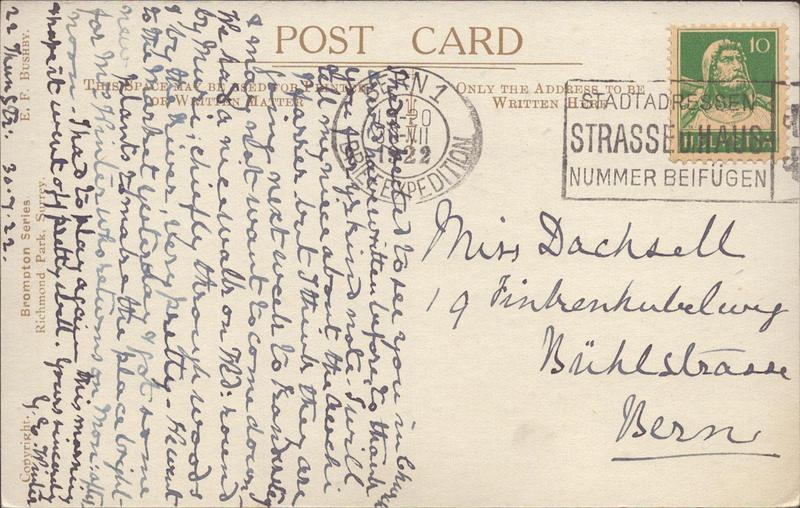 POST CARD
THIS SPACE MAY BE USED FOR PRINTED
OR WRITTEN MATTER
ONLY THE ADDRESS TO BE
WRITTEN HERE
10
HELVETIA
BERN 1
VII
1922
BRIEFEXPEDITION
STADTADRESSEN
STRASSE & HAUS
NUMMER BEIFÜGEN
Miss Dachsell
19 Finkenhubelweg
Bühlstrasse
Bern
to see you in Chur
written before to thank
you for yr kind note. I will
tell my niece about the
Harrier but I think they are
going next week to Kandersteg
& may not want to come down.
We had a nice walk on Fd: round
by , chiefly through woods
& by the river, very pretty. I went
to the Market yesterday & got some
new plants to make the place bright
for Mr Winter who returns on Mon: after
noon. I had to play again this morning
hope it went off pretty well. Yours sincerely
Winter
22 Thun Str: 30.7.22.
Copyright.
Brompton Series.
Richmond Park, Surrey.
E. F. BUSHBY.